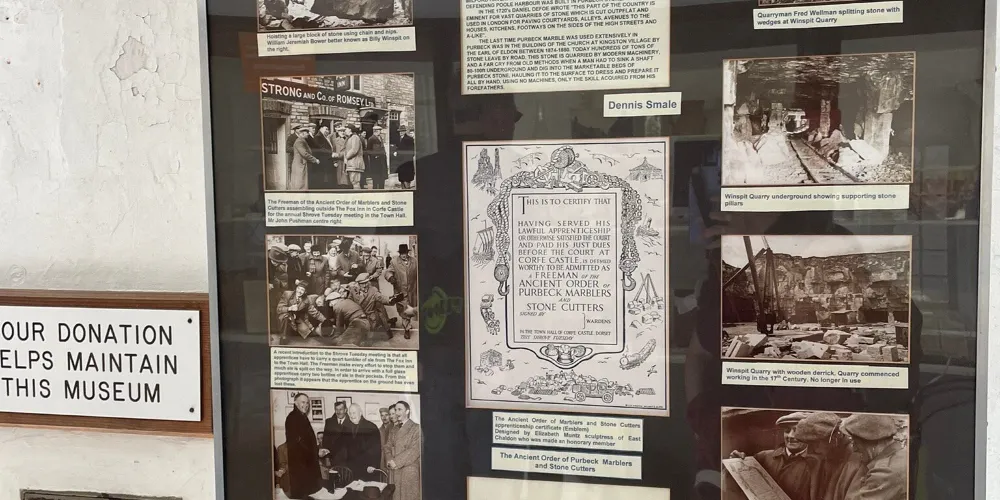 OUR DONATION
ELPS MAINTAIN
THIS MUSEUM
Hoisting a large block of stone using chain and nips.
William Jeremiah Bower better known as Billy Winspit on
the right.
STRONG AND CO. OF ROMSEY LTD
The Freeman of the Ancient Order of Marblers and Stone
Cutters assembling outside The Fox Inn in Corfe Castle
for the annual Shrove Tuesday meeting in the Town Hall.
Mr John Pushman centre right.
A recent introduction to the Shrove Tuesday meeting is that all
apprentices have to carry a quart tumbler of ale from The Fox Inn
to the Town Hall. The Freemen make every effort to stop them and
much ale is spilt on the way. In order to arrive with a full glass
apprentices carry two bottles of ale in their pockets. From this
photograph it appears that the apprentice on the ground has even
lost these.
DEFENDING POOLE HARBOUR WAS BUILT IN
IN THE 1720'S DANIEL DEFOE WROTE "THIS PART OF THE COUNTRY IS
EMINENT FOR VAST QUARRIES OF STONE WHICH IS CUT OUTFLAT AND
USED IN LONDON FOR PAVING COURTYARDS, ALLEYS, AVENUES TO THE
HOUSES, KITCHENS, FOOTWAYS ON THE SIDES OF THE HIGH STREETS AND
A-LIKE".
THE LAST TIME PURBECK MARBLE WAS USED EXTENSIVELY IN
PURBECK WAS IN THE BUILDING OF THE CHURCH AT KINGSTON VILLAGE BY
THE EARL OF ELDON BETWEEN 1874-1880. TODAY HUNDREDS OF TONS OF
STONE LEAVE BY ROAD. THIS STONE IS QUARRIED BY MODERN MACHINERY,
AND A FAR CRY FROM OLD METHODS WHEN A MAN HAD TO SINK A SHAFT
UNDERGROUND AND DIG INTO THE MARKETABLE BEDS OF
PURBECK STONE, HAULING IT TO THE SURFACE TO DRESS AND PREPARE IT
ALL BY HAND, USING NO MACHINES, ONLY THE SKILL ACQUIRED FROM HIS
FOREFATHERS.
Dennis Smale
THIS IS TO CERTIFY THAT
HAVING SERVED HIS
LAWFUL APPRENTICESHIP
OR OTHERWISE SATISFIED THE COURT
AND PAID HIS JUST DUES
BEFORE THE COURT AT
CORFE CASTLE, IS DEEMED
WORTHY TO BE ADMITTED AS
A FREEMAN OF THE
ANCIENT ORDER OF
PURBECK MARBLERS
AND
STONE CUTTERS
SIGNED BY
WARDENS
IN THE TOWN HALL OF CORFE CASTLE, DORSET
THIS SHROVE TUESDAY
The Ancient Order of Marblers and Stone Cutters
apprenticeship certificate (Emblem)
Designed by Elizabeth Muntz sculptress of East
Chaldon who was made an honorary member
The Ancient Order of Purbeck Marblers
and Stone Cutters
Quarryman Fred Wellman splitting stone with
wedges at Winspit Quarry
Winspit Quarry underground showing supporting stone
pillars
Winspit Quarry with wooden derrick, Quarry commenced
working in the 17th Century. No longer in use